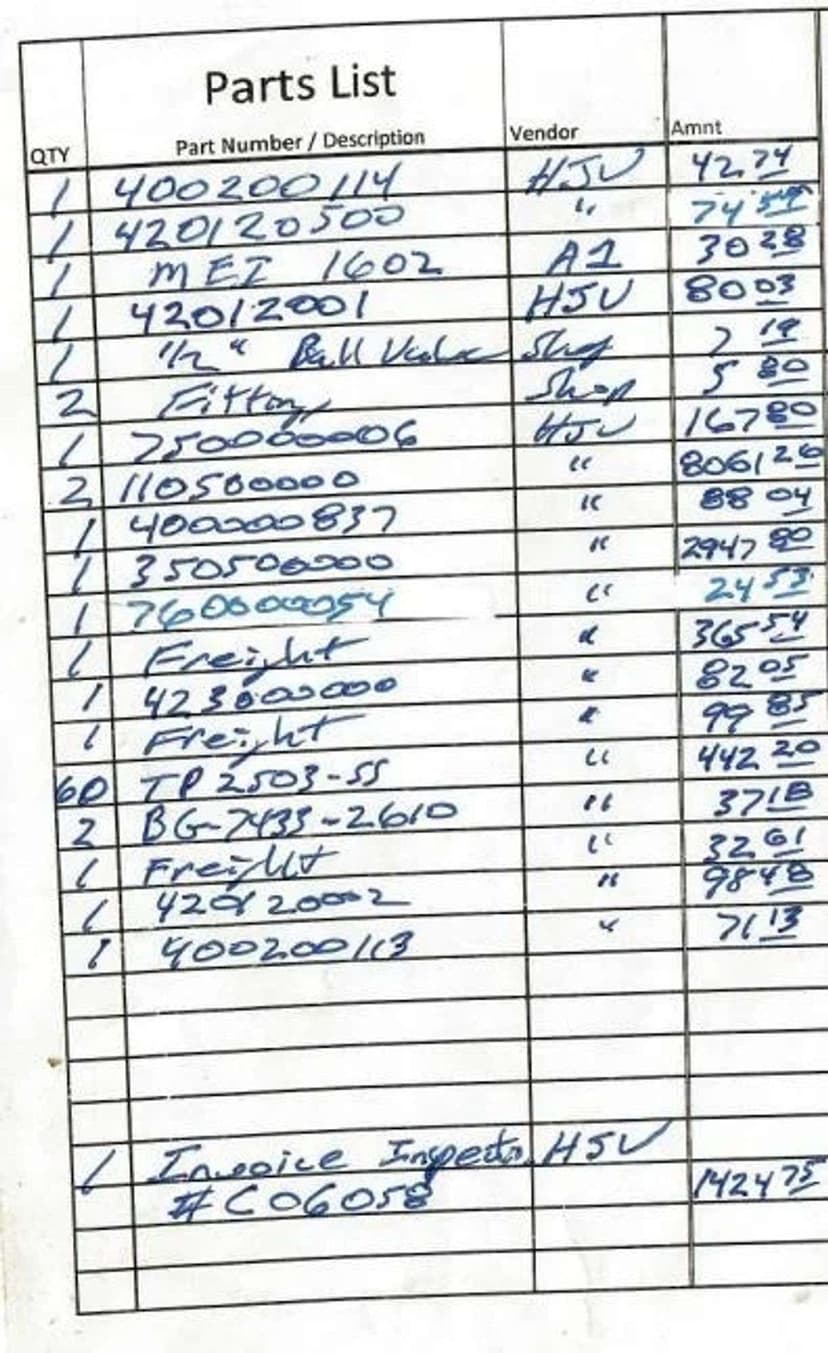 Parts List
QTY Part Number / Description Vendor Amnt
1 400200114 HJV 42.74
1 420120500 " 74
1 MEI 1602 A1 30 28
1 42012001 HJV 80 03
1 1/2" Ball Valve Shop 7 19
2 Fitting Shop 5 80
1 750000006 HJV 167 80
2 110500000 " 8061 26
1 400000837 " 88 04
1 350500000 " 2947 80
1 760000054 " 24 53
1 Freight " 365 54
1 423000000 " 82 05
1 Freight " 99 85
60 TP2503-SS " 442 20
2 BG-7433-2610 " 37 18
1 Freight " 32 61
1 420120002 " 98 48
1 400200113 " 71 13
1 Invoice Inspecto HJV
#C06058 1424 75